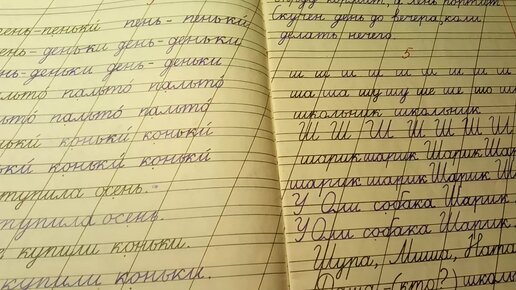 пень-пеньки пень-пеньки
день-деньки день-деньки
день-деньки день-деньки
пальто пальто пальто
пальто пальто пальто
коньки коньки
коньки коньки коньки
осень.
осень.
купили коньки.
купили коньки.
скучен день до вечера, коли
делать нечего.
5
ш ш ш ш ш ш ш ш ш
ша ша шу шу ше ше шо
школьник школьник
Ш Ш Ш Ш Ш Ш Ш
шарик шарик Шарик Шарик
шарик шарик Шарик
У Оли собака Шарик.
У Оли собака Шарик.
Шура, Миша, Ната
(кто?)